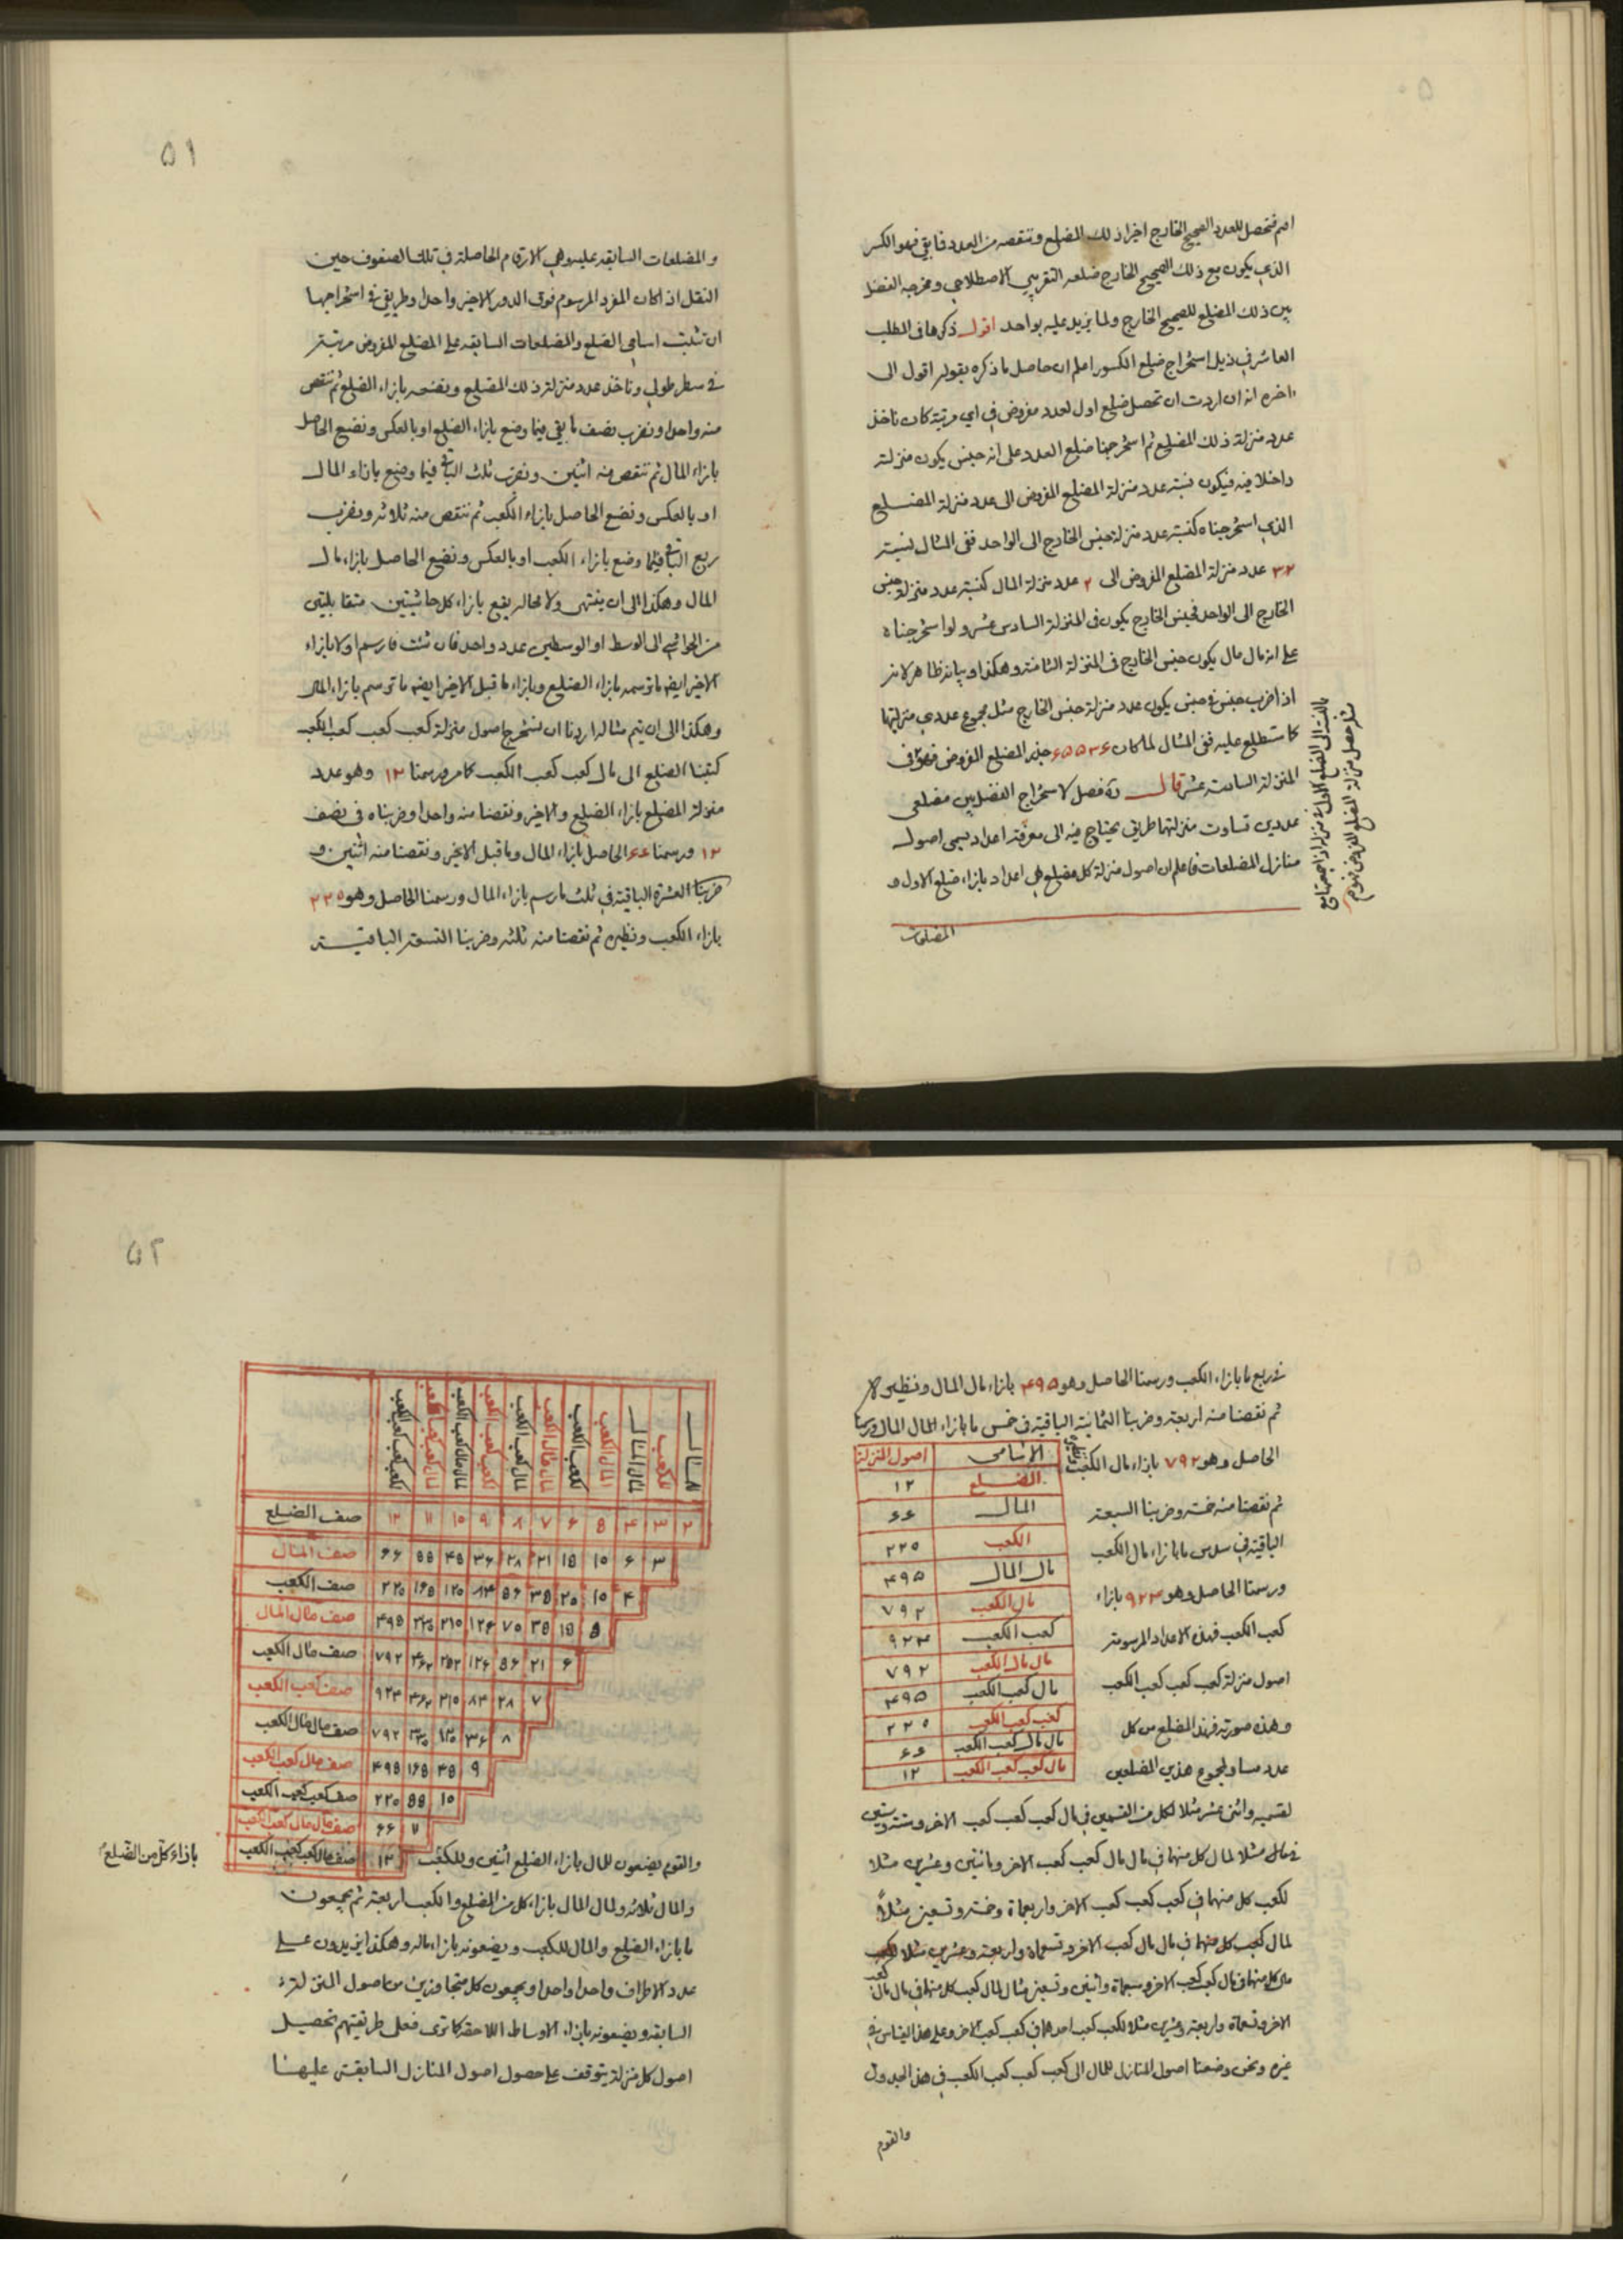 ۵۰
اصم فتحصل للعدد الصحيح الخارج اخيرا ذلك المضلع وتنقصه من العدد فما بقي فهو الكسر
الذي يكون مع ذلك الصحيح الخارج ضلعه التقريبي الاصطلاحي ومخرجه الفضل
بين ذلك المضلع للصحيح الخارج ولما يزيد عليه بواحد اقول ذكرها في المطلب
العاشر في ذيل استخراج ضلع الكسور اعلم ان حاصل ما ذكره بقوله اقول الى
اخره انه ان اردت ان تحصل ضلع اول لعدد مفروض في اي مرتبة كان ناخذ
عدد منزلة ذلك المضلع ثم استخرجنا ضلع العدد على انه جنس يكون منزلته
داخلا فيه فيكون نسبة عدد منزلة المضلع المفروض الى عدد منزلة المضلع
الذي استخرجناه كنسبة عدد منزلة جنس الخارج الى الواحد ففي المثال نسبة
۳۲ عدد منزلة المضلع المفروض الى ۲ عدد منزلة المال كنسبة عدد منزلة جنس
الخارج الى الواحد فجنس الخارج يكون في المنزلة السادس عشر ولو استخرجناه
على انه مال مال يكون جنس الخارج في المنزلة الثامنة وهكذا وبيانه ظاهر لانه
اذا ضرب جنس في جنس يكون عدد منزلة جنس الخارج مثل مجموع عددي منزلتهما
كما ستطلع عليه ففي المثال لما كان ۶۵۵۳۶ جذر المضلع المفروض فهو في
المنزلة السادسة عشر قال ره فصل لاستخراج الفضل بين مضلعي
عددين تساوت منزلتهما طريق يحتاج فيه الى معرفة اعداد يسمى اصول
منازل المضلعات فاعلم ان اصول منزلة كل مضلع هي اعداد بازاء ضلع الاول و
المضلعات
۵۱
والمضلعات السابقه عليه وهي الارقام الحاصلة في تلك الصفوف حين
النقل اذا كان المفرد المرسوم فوق الدور الاخير واحدا وطريق في استخراجها
ان تثبت اسامي الضلع والمضلعات السابقه على المضلع المفروض مرتبة
في سطر طولي وناخذ عدد منزلة ذلك المضلع ونضعه بازاء الضلع ثم ننقص
منه واحدا ونضرب نصف ما بقي فيما وضع بازاء الضلع او بالعكس ونضع الحاصل
بازاء المال ثم ننقص منه اثنين ونضرب ثلث الباقي فيما وضع بازاء المال
او بالعكس ونضع الحاصل بازاء الكعب ثم ننقص منه ثلاثه ونضرب
ربع الباقي فيما وضع بازاء الكعب او بالعكس ونضع الحاصل بازاء مال
المال وهكذا الى ان ينتهى ولا محاله يقع بازاء كل حاشيتين متقابلتين
من الحواشي الى الوسط او الوسطين عدد واحد فان شئت فارسم اولا بازاء
الاخير ايضا ما ترسمه بازاء الضلع وبازاء ما قبل الاخير ايضا ما ترسم بازاء المال
وهكذا الى ان يتم مثاله اردنا ان نستخرج اصول منزلة كعب كعب كعب الكعب
كتبنا الضلع الى مال كعب كعب الكعب كما مر ورسمنا ۱۲ وهو عدد
منزلة المضلع بازاء الضلع والاخير ونقصنا منه واحدا وضربناه في نصف
۱۲ ورسمنا ۶۶ الحاصل بازاء المال وما قبل الاخير ونقصنا منه اثنين و
ضربنا العشرة الباقية في ثلث ما رسم بازاء المال ورسمنا الحاصل وهو ۲۲۰
بازاء الكعب ونظيره ثم نقصنا منه ثلثه وضربنا التسعة الباقية
في ربع ما بازاء الكعب ورسمنا الحاصل وهو ۴۹۵ بازاء مال المال ونظيره
ثم نقصنا منه اربعة وضربنا الثمانية الباقية في خمس ما بازاء المال المال ورسمنا
الحاصل وهو ۷۹۲ بازاء مال الكعب ونظيره
ثم نقصنا منه خمسة وضربنا السبعة
الباقية في سدس ما بازاء مال الكعب
ورسمنا الحاصل وهو ۹۲۴ بازاء
كعب الكعب فهذه الاعداد المرسومة
اصول منزلة كعب كعب كعب الكعب
وهذه صورته فهذا المضلع من كل
عدد مساو لمجموع هذين المضلعين
الاسامى اصول المنزلة
الضلع ۱۲
المال ۶۶
الكعب ۲۲۰
مال المال ۴۹۵
مال الكعب ۷۹۲
كعب الكعب ۹۲۴
مال مال الكعب ۷۹۲
مال كعب الكعب ۴۹۵
كعب كعب الكعب ۲۲۰
مال مال كعب الكعب ۶۶
مال كعب كعب الكعب ۱۲
لقسميه واثنى عشر مثلا لكل من القسمين في مال كعب كعب كعب الاخر وستة وستين
مثلا لمال كل منهما في مال مال كعب كعب الاخر ومائتين وعشرين مثلا
لكعب كل منهما في كعب كعب كعب الاخر واربعماة وخمسة وتسعين مثلاً
غيره ونحن وضعنا اصول المنازل للمال الى كعب كعب كعب الكعب في هذا الجدول
والقوم
۵۲
للمال للكعب لمال المال لمال الكعب لكعب الكعب لمال مال الكعب لمال كعب الكعب لكعب كعب الكعب لمال مال كعب الكعب لمال كعب كعب الكعب لكعب كعب كعب الكعب
صف الضلع ۱۲ ۱۱ ۱۰ ۹ ۸ ۷ ۶ ۵ ۴ ۳ ۲
صف المال ۶۶ ۵۵ ۴۵ ۳۶ ۲۸ ۲۱ ۱۵ ۱۰ ۶ ۳
صف الكعب ۲۲۰ ۱۶۵ ۱۲۰ ۸۴ ۵۶ ۳۵ ۲۰ ۱۰ ۴
صف مال المال ۴۹۵ ۳۳۰ ۲۱۰ ۱۲۶ ۷۰ ۳۵ ۱۵ ۵
صف مال الكعب ۷۹۲ ۴۶۲ ۲۵۲ ۱۲۶ ۵۶ ۲۱ ۶
صف كعب الكعب ۹۲۴ ۴۶۲ ۲۱۰ ۸۴ ۲۸ ۷
صف مال مال الكعب ۷۹۲ ۳۳۰ ۱۲۰ ۳۶ ۸
صف مال كعب الكعب ۴۹۵ ۱۶۵ ۴۵ ۹
صف كعب كعب الكعب ۲۲۰ ۵۵ ۱۰
صف مال مال كعب الكعب ۶۶ ۱۱
صف مال كعب كعب الكعب ۱۲
والقوم يضعون للمال بازاء الضلع اثنين وللكعب
بازاء كل من الضلع
والمال ثلاثه ولمال المال بازاء كل من الضلع والكعب اربعة ثم يجمعون
ما بازاء الضلع والمال للكعب ويضعونه بازاء ماله وهكذا يزيدون على
عدد الاطراف واحدا واحدا ويجمعون كل متجاورين من اصول المنزلة
السابقه ويضعونه بازاء الاوساط اللاحقة كما ترى فعلى طريقتهم تحصيل
اصول كل منزلة يتوقف على حصول اصول المنازل السابقة عليها